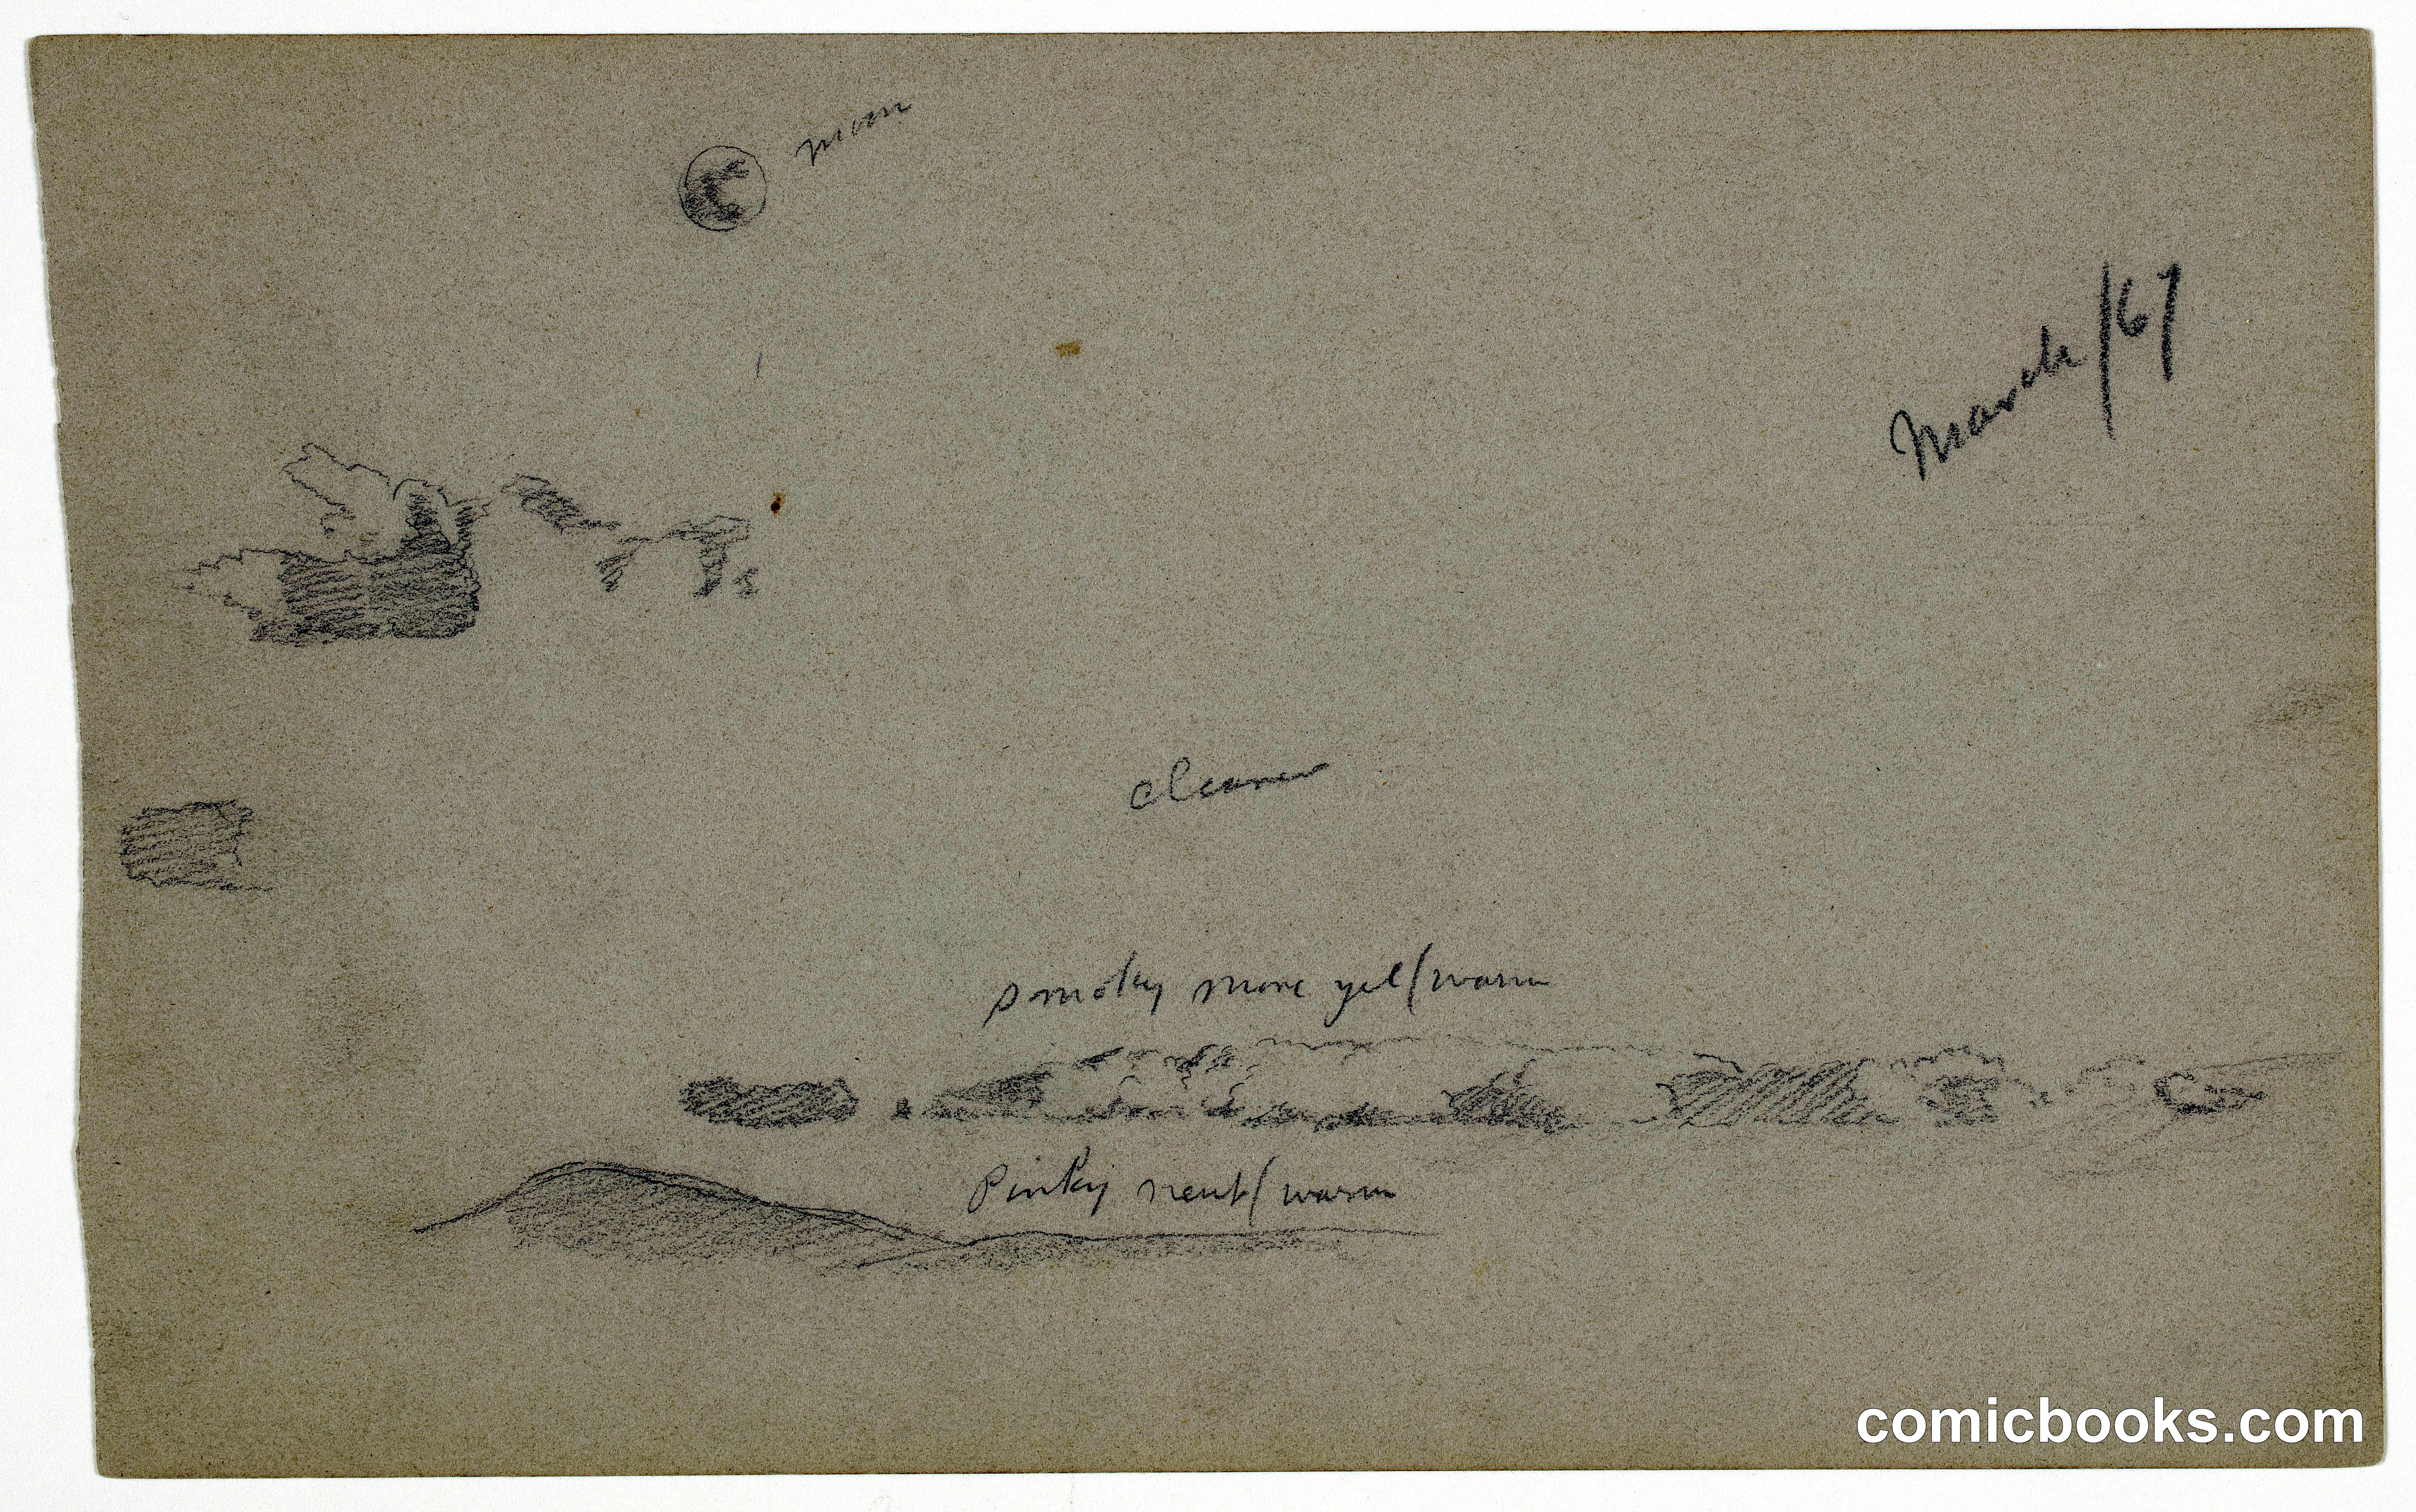 moon
March/67
clearer
smoky more yel/warm
Pinky neut/warm
comicbooks.com